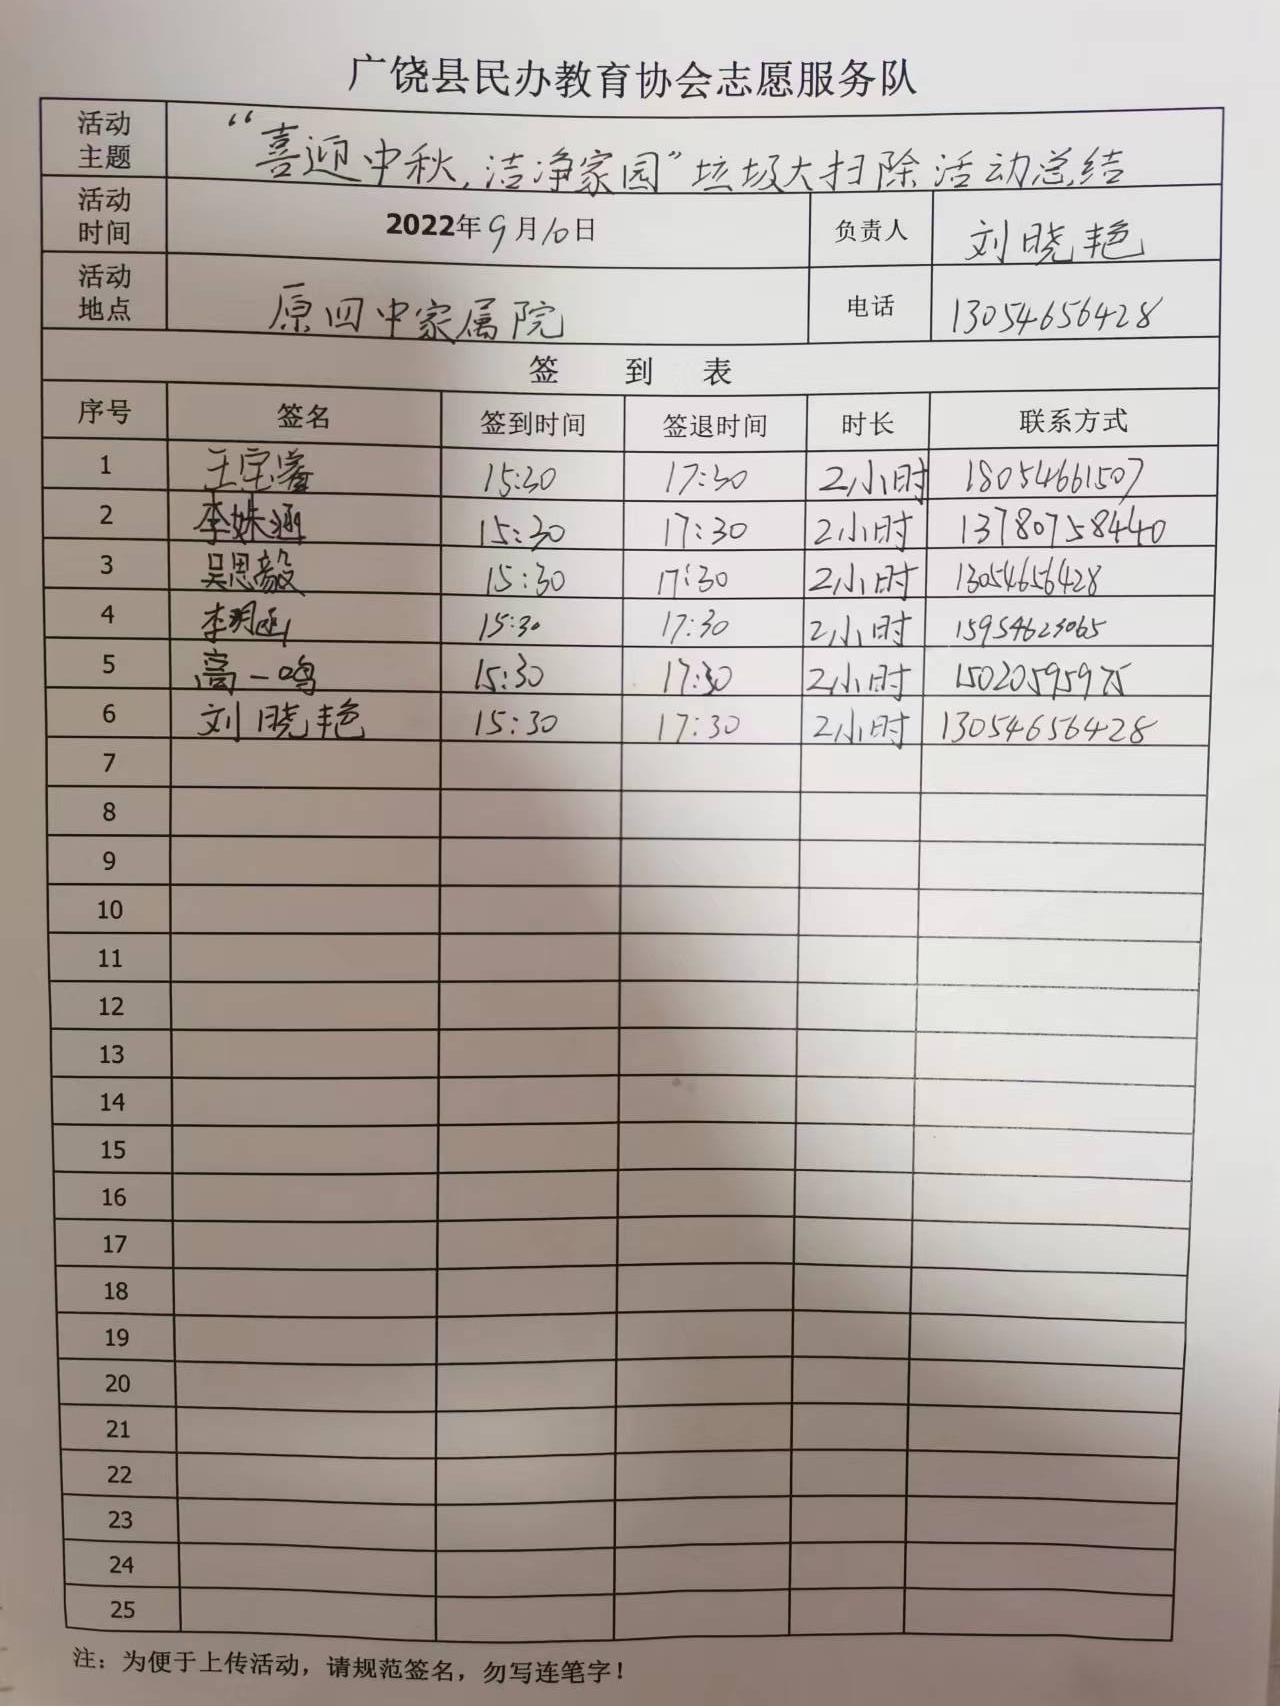 广饶县民办教育协会志愿服务队
活动主题 “喜迎中秋,洁净家园”垃圾大扫除活动总结
活动时间 2022年9月10日 负责人 刘晓艳
活动地点 原四中家属院 电话 13054656428
签 到 表
序号 签名 签到时间 签退时间 时长 联系方式
1 王宇 15:30 17:30 2小时 18054661507
2 李姝涵 15:30 17:30 2小时 13780758440
3 吴思毅 15:30 17:30 2小时 13054656428
4 李明函 15:30 17:30 2小时 15954623065
5 高一鸣 15:30 17:30 2小时 15020595975
6 刘晓艳 15:30 17:30 2小时 13054656428
7
8
9
10
11
12
13
14
15
16
17
18
19
20
21
22
23
24
25
注：为便于上传活动，请规范签名，勿写连笔字！